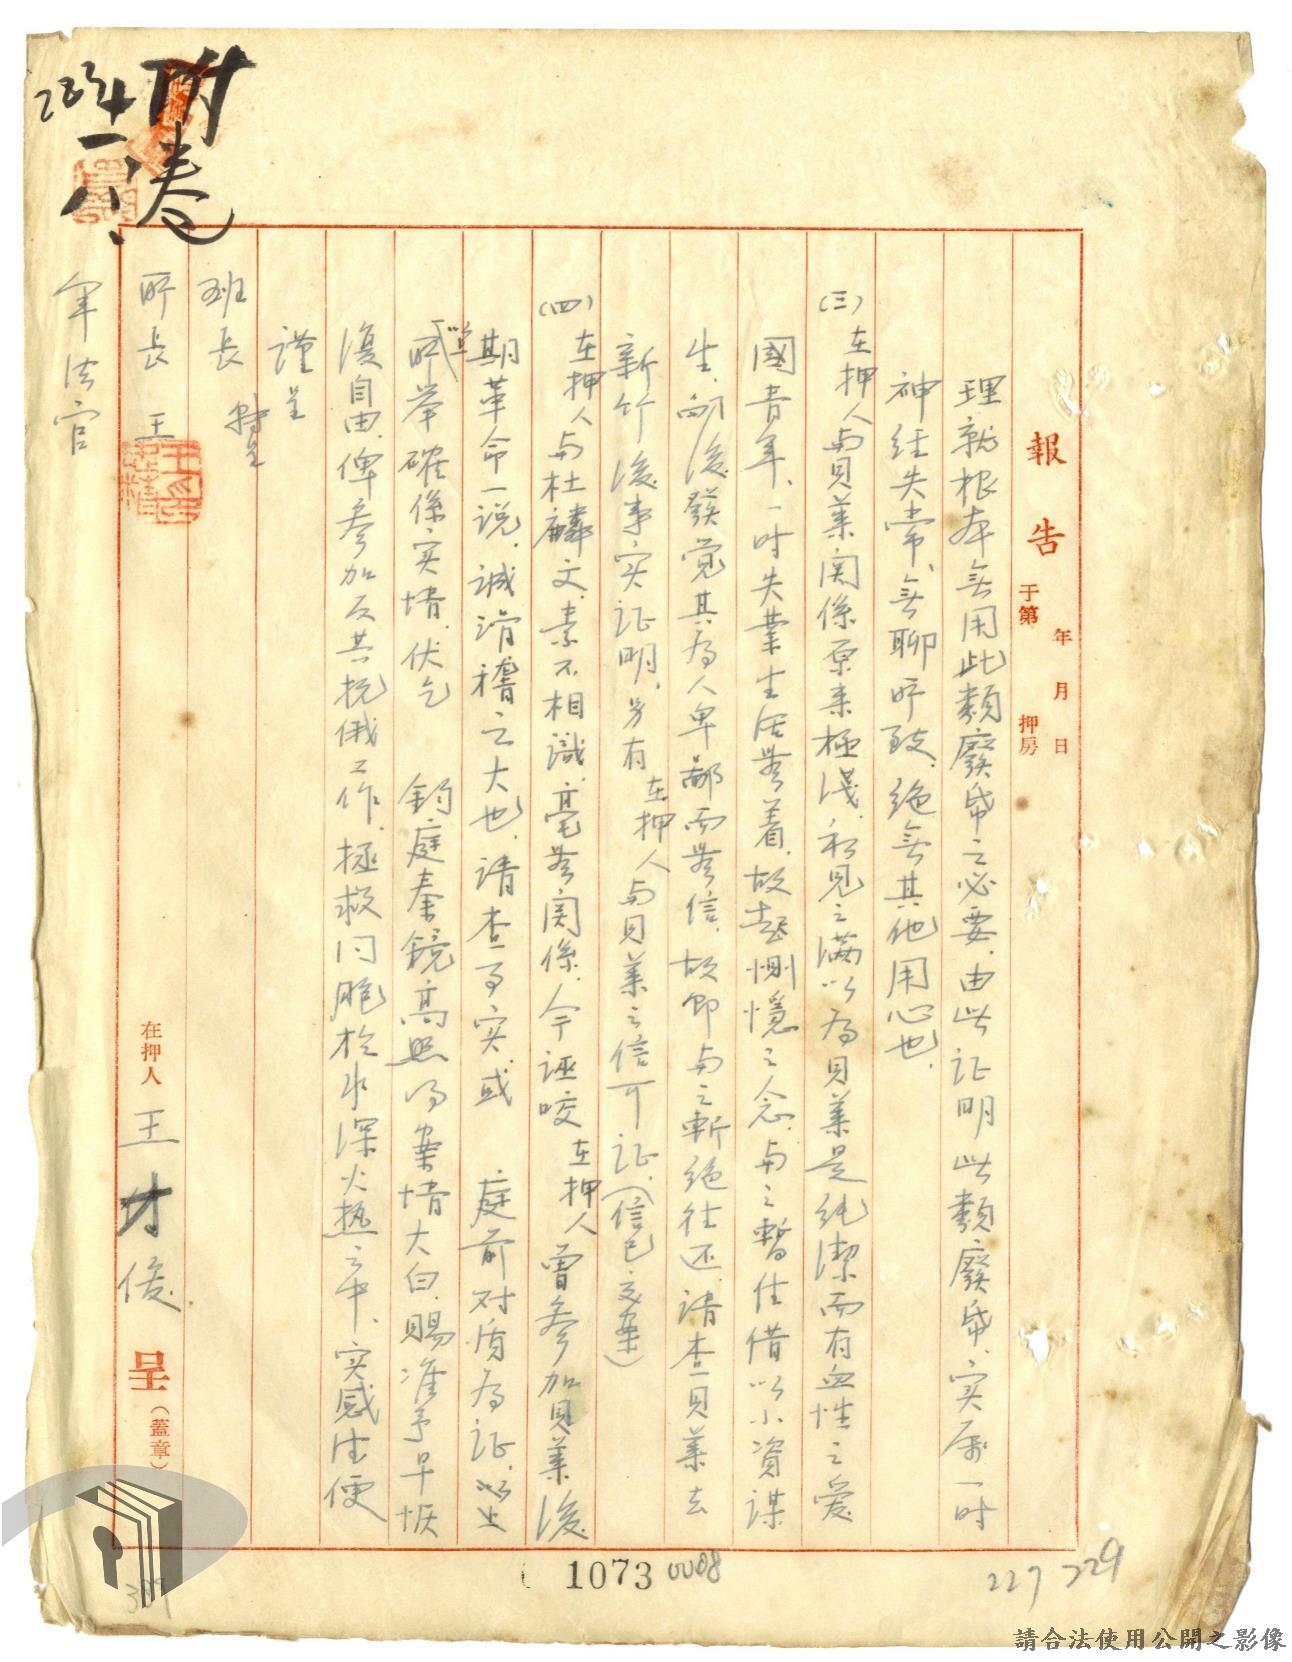 報告
于第 年 月 日 押房
理就根本無用此類廢帋之必要.由此证明此類廢帋、实屬一时
神经失常、無聊所致.绝無其他用心也.
(三)在押人与貝萊関係原来極浅.初見之满以為貝萊是純潔而有血性之爱
國青年、一时失業生活無着.故起惻憶之念.与之暫住借以小資謀
生.嗣後發覚其為人卑鄙而無信.故即与之斬绝往还.请查貝萊去
新竹後事实证明.另有在押人与貝萊之信可证.(信已交案)
(四)在押人与杜麟文.素不相識.毫無関係.今诬咬在押人曾参加貝萊後
期革命一说.诚滑稽之大也.请查事实.或 庭前对質為证.以上
所举確係实情.伏乞 鈞庭秦鏡高照乃案情大白.賜准予早恢
復自由.俾参加反共抗俄工作.拯救同胞於水深火热之中.实感法便
謹呈
班長 轉呈
所長 王
軍法官
在押人 王才俊 呈(蓋章)
附卷
1073
0008
227 229
請合法使用公開之影像